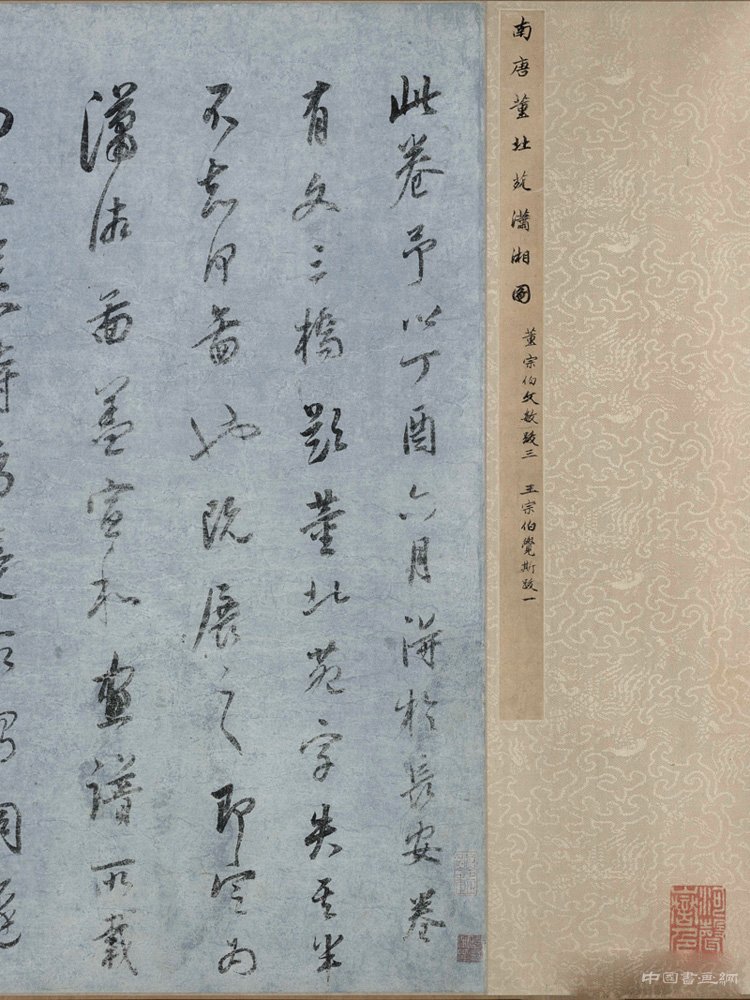 南唐董北苑瀟湘圖
董宗伯文敏跋三 王宗伯覺斯跋一
此卷予以丁酉六月得於長安卷
有文三橋題董北苑字失其半
不知何圖也既展之即定為
瀟湘圖蓋宣和畫譜所載
中国書画網